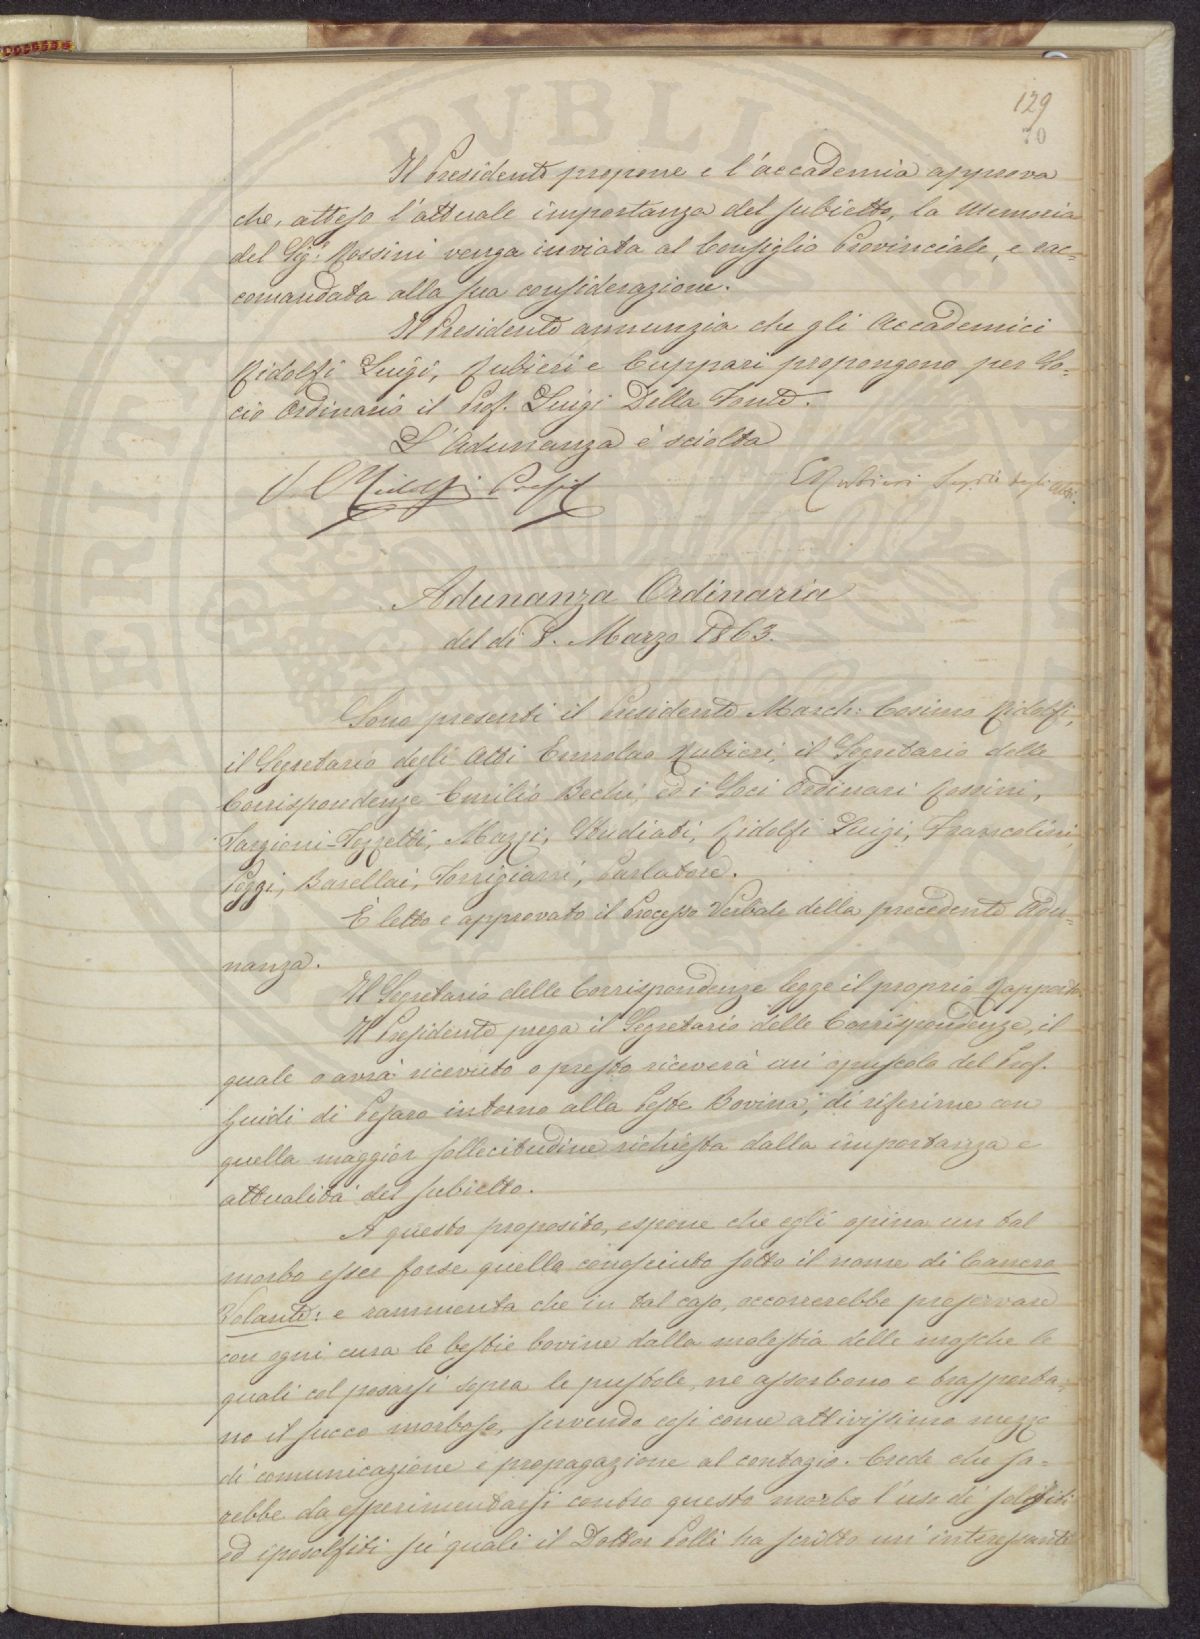 129
70
Il Presidente propone e l'accademia approva
che, atteso l'attuale importanza del subietto, la Memoria
del Sigr. Rossini venga inviata al Consiglio Provinciale, e rac=
comandata alla sua considerazione.
Il Presidente annunzia che gli Accademici
Ridolfi Luigi, Rubieri e Cuppari propongono per So=
cio Ordinario il Prof. Luigi Della Fonte.
L'Adunanza è sciolta
C. Ridolfi Presid
E Rubieri Segrio degli Atti.
Adunanza Ordinaria
del dì 8. Marzo 1863.
Sono presenti il Presidente March: Cosimo Ridolfi,
il Segretario degli Atti Ermolao Rubieri, il Segretario delle
Corrispondenze Emilio Bechi, ed i Soci Ordinari Rossini,
Targioni-Tozzetti, Mazzi, Studiati, Ridolfi Luigi, Francolini,
Poggi, Barellai, Torrigiani, Parlatore.
È letto e approvato il Processo Verbale della precedente Adu=
nanza.
Il Segretario delle Corrispondenze legge il proprio Rapporto.
Il Presidente prega il Segretario delle Corrispondenze, il
quale o avrà ricevuto o presto riceverà un'opuscolo del Prof.
Guidi di Pesaro intorno alla Peste Bovina, di riferirne con
quella maggior sollecitudine richiesta dalla importanza e
attualità del subietto.
A questo proposito, espone che egli opina un tal
morbo esser forse quello conosciuto sotto il nome di Cancro
Volante: e rammenta che in tal caso, occorrerebbe preservare
con ogni cura le bestie bovine dalla molestia delle mosche le
quali col posarsi sopra le pustole, ne assorbono e trasporta=
no il succo morboso, servendo così come attivissimo mezzo
di comunicazione e propagazione al contagio. Crede che sa=
rebbe da esperimentarsi contro questo morbo l'uso de' solfiti
ed iposolfiti su' quali il Dottor Polli ha scritto un'interessante